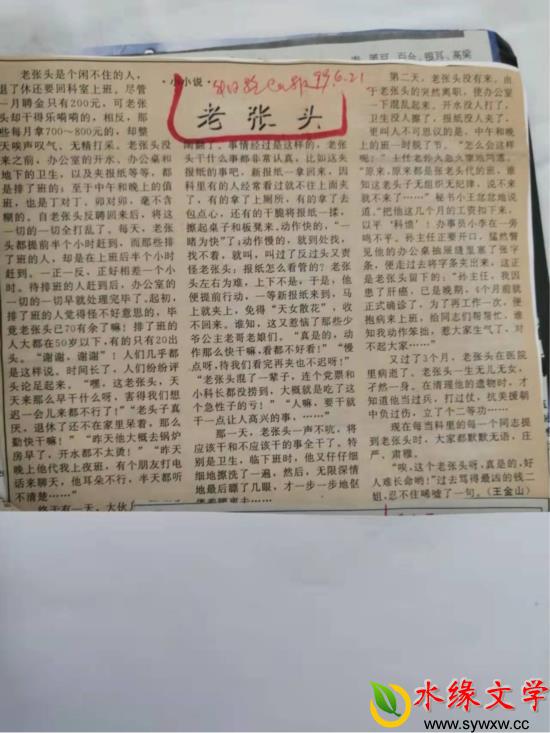 ·小小说·
99.6.21
老张头
老张头是个闲不住的人,
退了休还要回科室上班。尽管
一月聘金只有200元,可老张
头却干得乐嗬嗬的,相反,那
些每月拿700~800元的,却整
天唉声叹气、无精打采。老张头没
来之前,办公室的开水、办公桌和
地下的卫生,以及夹报纸等等,都
是排了班的;至于中午和晚上的值
班,也是丁对丁、卯对卯,毫不含
糊的。自老张头反聘回来后,将这
一切的一切全打乱了。每天,老张
头都提前半个小时赶到,而那些排
了班的人,却是在上班后半个小时
赶到。一正一反,正好相差一个小
时。待排班的人赶到后,办公室的
一切的一切早就处理完毕了。起初,
排了班的人觉得怪不好意思的,毕
竟老张头已70有余了嘛!排了班的
人大都在50岁以下,有的只有20出
头。“谢谢,谢谢”!人们几乎都
是这样说。时间长了,人们纷纷评
头论足起来。“嘿,这老张头,天
天来那么早干什么呀,害得我们想
迟一会儿来都不行了!”“老头子真
厌,退休了还不在家里呆着,那么
勤快干嘛!”“昨天他大概去锅炉
房早了,开水都不太烫!”“昨天
晚上他代我上夜班,有个朋友打电
话来聊天,他耳朵不行,半天都听
不清楚……”
终于有一天,大伙
闹翻了。事情经过是这样的,老张
头干什么事都非常认真,比如这夹
报纸的事吧,新报纸一拿回来,因
科里有的人经常看过就不往上面夹
了,有的拿了上厕所,有的拿了去
包点心,还有的干脆将报纸一揉,
擦起桌子和板凳来。动作快的,“一
睹为快”了;动作慢的,就到处找,
找不着,就叫,叫过了反过头又责
怪老张头:报纸怎么看管的?老张
头左右为难,上下不是,于是,他
便提前行动,一等新报纸来到,马
上就夹上,免得“天女散花”,收
不回来。谁知,这又惹恼了那些少
爷公主老哥老娘们。“真是的,动
作那么快干嘛,看都不好看!”“慢
点呀,待我们看完再夹也不迟呀!”
“老张头混了一辈子,连个党票和
小科长都没捞到,大概就是吃了这
个急性子的亏!”“人嘛,要干就
干一点让人高兴的事,……”
那一天,老张头一声不吭,将
应该干和不应该干的事全干了。特
别是卫生,临下班时,他又仔仔细
细地擦洗了一遍,然后,无限深情
地最后瞟了几眼,才一步一步地伛
第二天,老张头没有来。由
于老张头的突然离职,使办公室
一下混乱起来。开水没人打了,
卫生没人擦了,报纸没人夹了。
更叫人不可思议的是,中午和晚
上的班一时脱了节。“怎么会这样
呢!”主任老孙大惑不解地问道。
“原来,原来都是张老头代的班,谁
知这老头子无组织无纪律,说不来
就不来了……”秘书小王忿忿地说
道。“把他这几个月的工资扣下来,
以平‘科愤’!办事员小李在一旁
鸣不平。孙主任正要开口,猛然瞥
见他的办公桌抽屉缝里塞了张字
条,便走过去将字条夹出来。这正
是老张头留下的:“孙主任,我因
患了肝癌,已是晚期,4个月前就
正式确诊了,为了再工作一次,便
抱病来上班,给同志们帮帮忙,谁
知我动作笨拙,惹大家生气了,对
不起大家……”
又过了3个月,老张头在医院
里病逝了。老张头一生无儿无女,
孑然一身。在清理他的遗物时,才
知道他当过兵,打过仗,抗美援朝
中负过伤,立了个二等功……
现在每当科里的每一个同志提
到老张头时,大家都默默无语,庄
严、肃穆。
“唉,这个老张头呀,真是的,好
人难长命哟!”过去骂得最凶的钱二
姐,忍不住唏嘘了一句。(王金山)
水缘文学
www.sywxw.cc